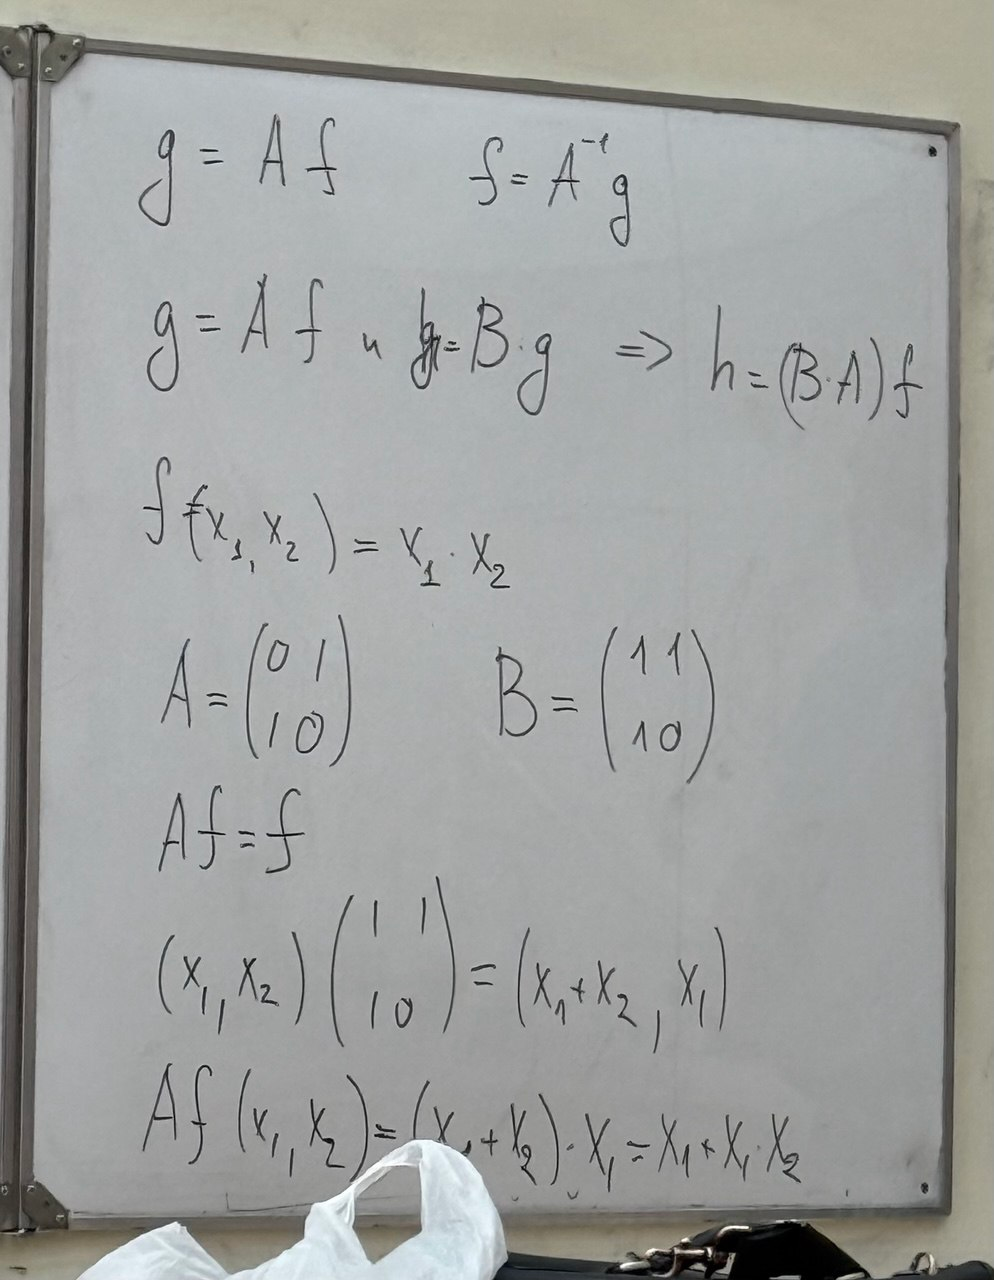 g = A f f = A⁻¹ g
g = A f и h = B · g ⇒ h = (B · A) f
f (x₁, x₂) = x₁ · x₂
A = (0 1 B = (1 1
1 0) 1 0)
A f = f
(x₁, x₂) (1 1
1 0) = (x₁ + x₂, x₁)
A f (x₁, x₂) = (x₁ + x₂) · x₁ = x₁ + x₁ · x₂